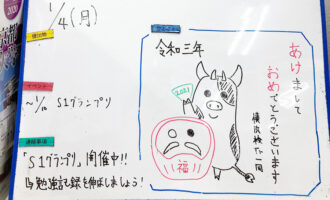 1/4(月)
提出物
イベント
~1/10 S1グランプリ
連絡事項
「S1グランプリ」開催中!!
↳勉強記録を伸ばしましょう!
令和三年
あけまして
おめでとうございます
2021
福